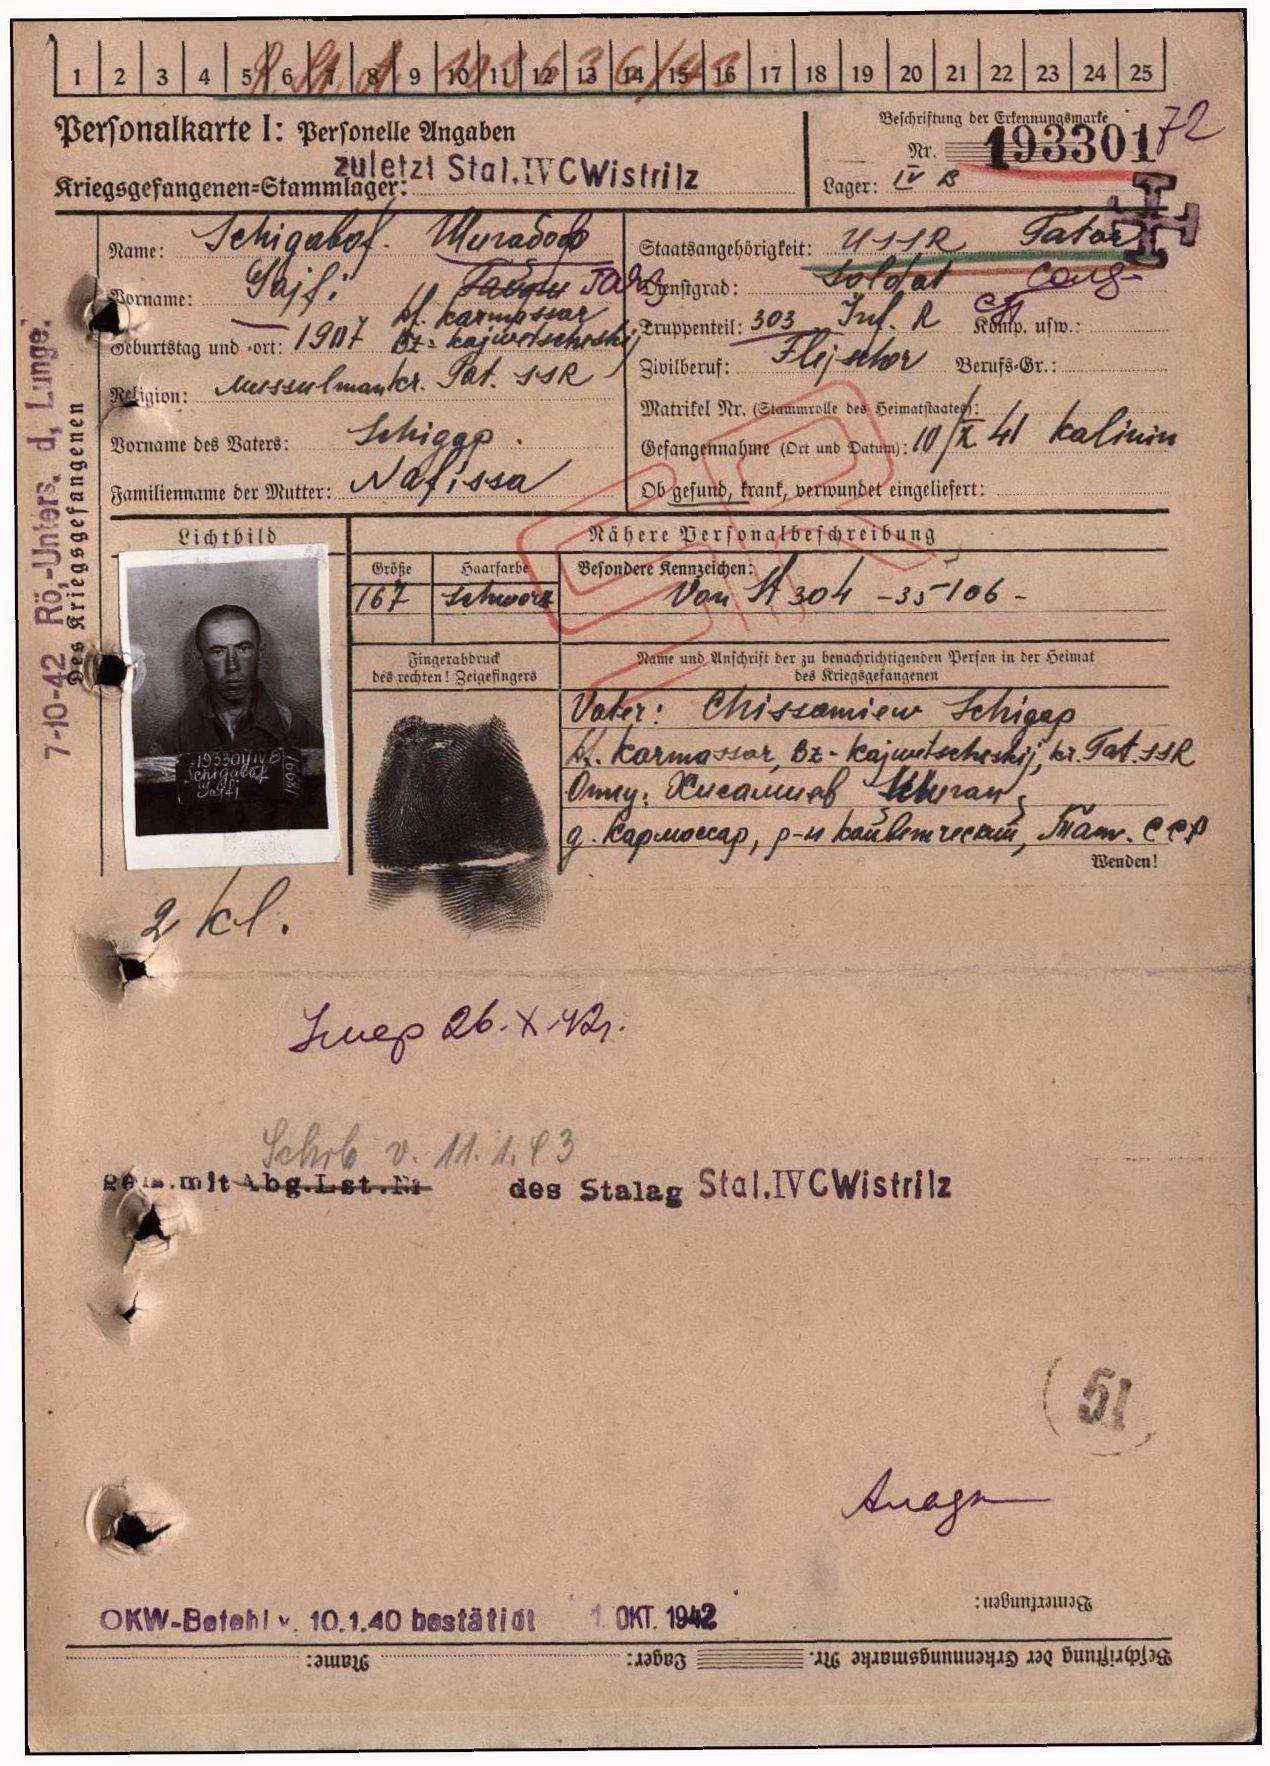 1 2 3 4 5 6 7 8 9 10 11 12 13 14 15 16 17 18 19 20 21 22 23 24 25
Personalkarte I: Personelle Angaben
Beschriftung der Erkennungsmarke
Nr. 193301
72
zuletzt Stal. IV C Wistritz
Kriegsgefangenen=Stammlager:
Lager: IV B
Name: Schigabof.
Staatsangehörigkeit: USSR Tatar
Vorname: Sajfi
Dienstgrad: Soldat
Geburtstag und -ort: 1907 df. Karmassar
Bz-Kajwetscheskij
kr. Tat. SSR
Truppenteil: 303 Inf. R Komp. usw.:
Religion: Mussulman
Zivilberuf: Flejscher Berufs=Gr.:
Matrikel Nr. (Stammrolle des Heimatstaates):
Vorname des Vaters: Schigap.
Gefangennahme (Ort und Datum): 10/X 41 Kalinin
Familienname der Mutter: Nafissa
Ob gesund, krank, verwundet eingeliefert:
7-10-42 Rö.-Unters. d. Lunge.
Des Kriegsgefangenen
Lichtbild
Nähere Personalbeschreibung
Größe Haarfarbe Besondere Kennzeichen:
167 schwarz Von St 304 -35106-
Fingerabdruck
des rechten! Zeigefingers
Name und Anschrift der zu benachrichtigenden Person in der Heimat
des Kriegsgefangenen
Vater: Chissamiew Schigap
df. Karmassar, Bz-Kajwetscheskij, kr. Tat. SSR
Отцу: Хисамиев Шигап
д. Кармассар, р-н Кайветческий, Тат. ССР
Wenden!
193301 IV B
Schigabof
Sajfi
2 kl.
Умер 26.X.42г.
Schrb v. 11.1.43
gem. mit Abg.Lst.Nr des Stalag Stal. IV C Wistritz
51
OKW-Befehl v. 10.1.40 bestätigt 1. OKT. 1942
Bemerkungen:
Beschriftung der Erkennungsmarke Nr. Lager: Name: